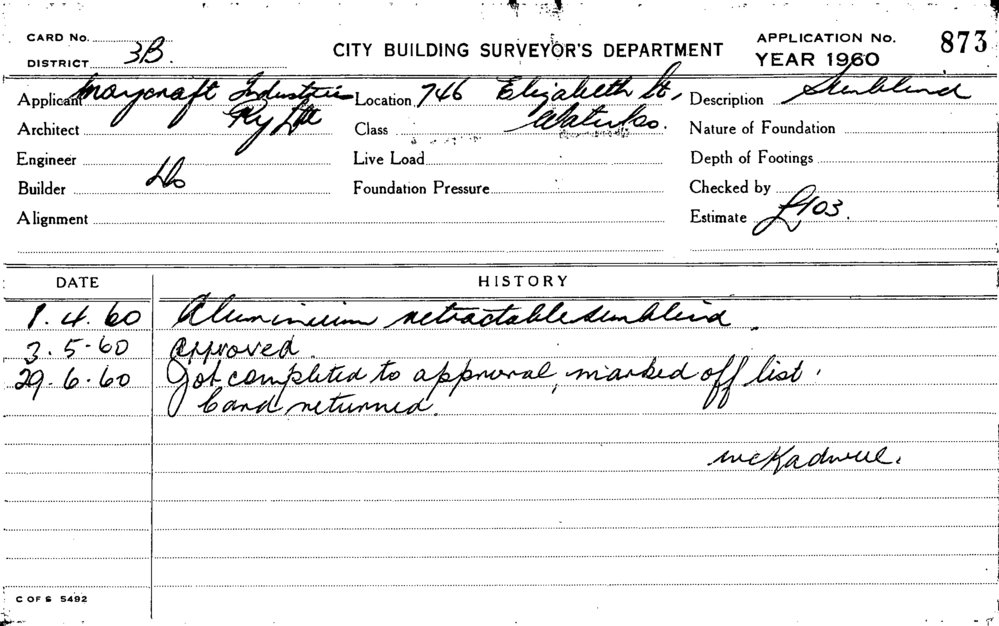 CARD No.
DISTRICT 3B.
CITY BUILDING SURVEYOR'S DEPARTMENT
APPLICATION No. 873
YEAR 1960
Applicant Industries Location 746 Elizabeth St, Description Sunblind
Pty Ltd Waterloo.
Architect Class Nature of Foundation
Engineer Live Load Depth of Footings
Builder Do Foundation Pressure Checked by
Alignment Estimate £103.
DATE HISTORY
1.4.60 Aluminium retractable sunblind.
3.5.60 approved.
29.6.60 Job completed to approval, marked off list.
Card returned.
C OF S 5492